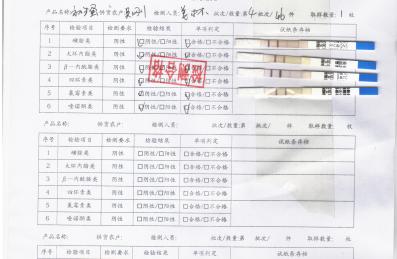 产品名称: 供货农户: 检测人员: 批次/数量:第4批次/ 件 取样数量:1 枝
序号 检验项目 检测要求 检验结果 单项判定 试纸条存档
1 磺胺类 阴性 ☑阴性/□阳性 ☑合格/□不合格
2 大环内酯类 阴性 ☑阴性/□阳性 ☑合格/□不合格
3 β-内酰胺类 阴性 ☑阴性/□阳性 ☑合格/□不合格
4 四环素类 阴性 ☑阴性/□阳性 ☑合格/□不合格
5 氯霉素类 阴性 ☑阴性/□阳性 ☑合格/□不合格
6 喹诺酮类 阴性 ☑阴性/□阳性 ☑合格/□不合格
检测合格
产品名称: 供货农户: 检测人员: 批次/数量:第 批次/ 件 取样数量: 枝
序号 检验项目 检测要求 检验结果 单项判定 试纸条存档
1 磺胺类 阴性 □阴性/□阳性 □合格/□不合格
2 大环内酯类 阴性 □阴性/□阳性 □合格/□不合格
3 β-内酰胺类 阴性 □阴性/□阳性 □合格/□不合格
4 四环素类 阴性 □阴性/□阳性 □合格/□不合格
5 氯霉素类 阴性 □阴性/□阳性 □合格/□不合格
6 喹诺酮类 阴性 □阴性/□阳性 □合格/□不合格
产品名称: 供货农户: 检测人员: 批次/数量:第 批次/ 件 取样数量: 枝
序号 检验项目 检测要求 检验结果 单项判定 试纸条存档